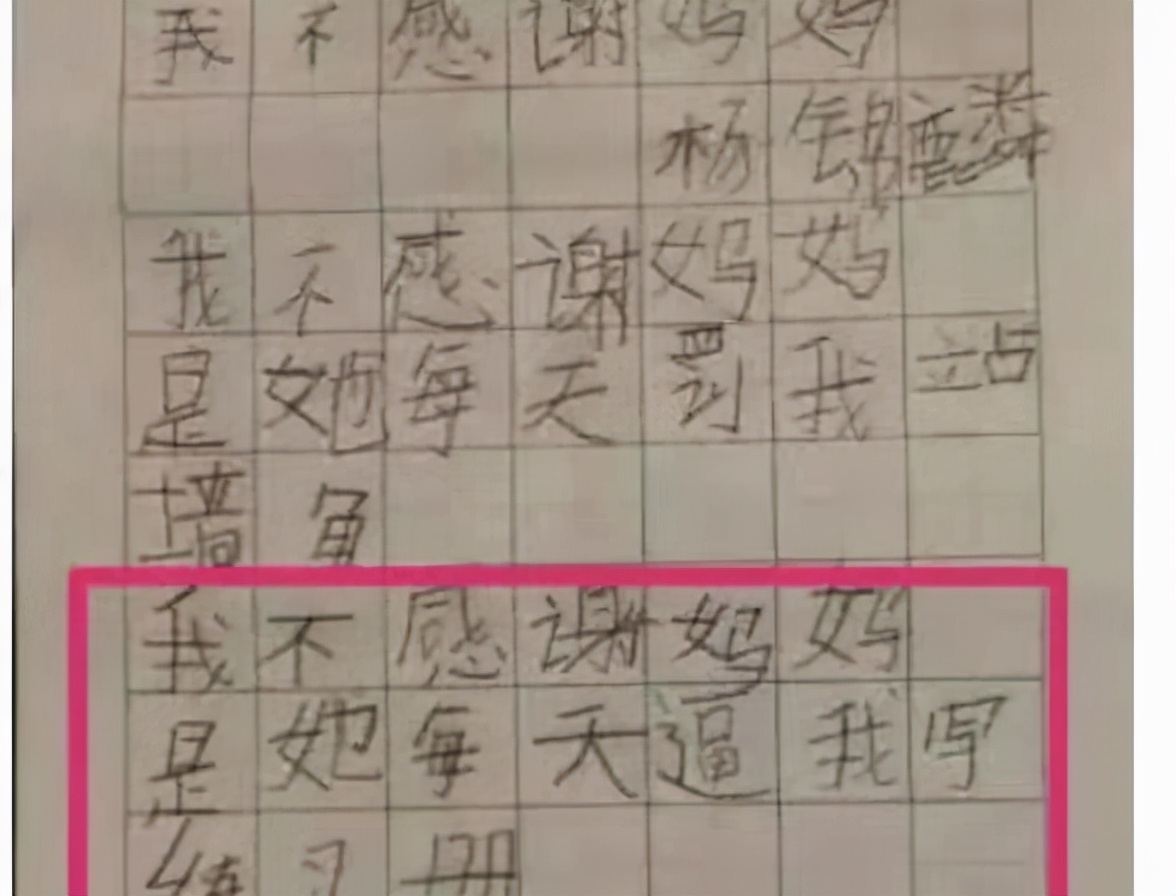 我不感谢妈妈
杨锦麟
我不感谢妈妈
是她每天罚我站
墙角
我不感谢妈妈
是她每天逼我写
练习册